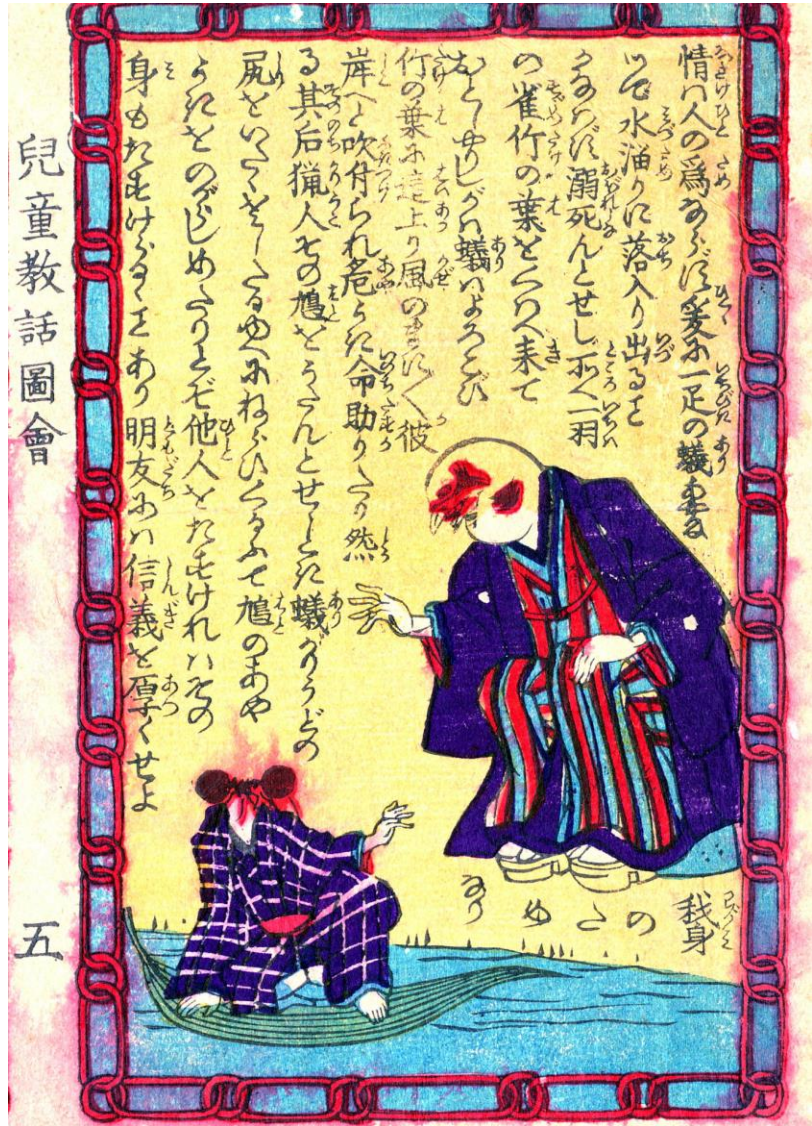 情ハ人の爲ならず爰に一疋の蟻あやま
ツて水溜りに落入り出るを
かなハず溺死んとせし所へ一羽
の雀竹の葉をくハへ来て
おとしやりしがハ蟻ハよろこび
竹の葉に這上り風のまに〱彼
岸へと吹付られ危うき命助りたり然
る其后猟人その鳩をうたんとせしとき蟻かりうどの
尻をいたくさしたるゆへにねらひくるふて鳩のあや
うきをのがらしめたりとぞ他人をたすけれハその
身もたすけらるゝことあり明友にハ信義を厚くせよ
我身
のため
なり
兒童教話圖會
五